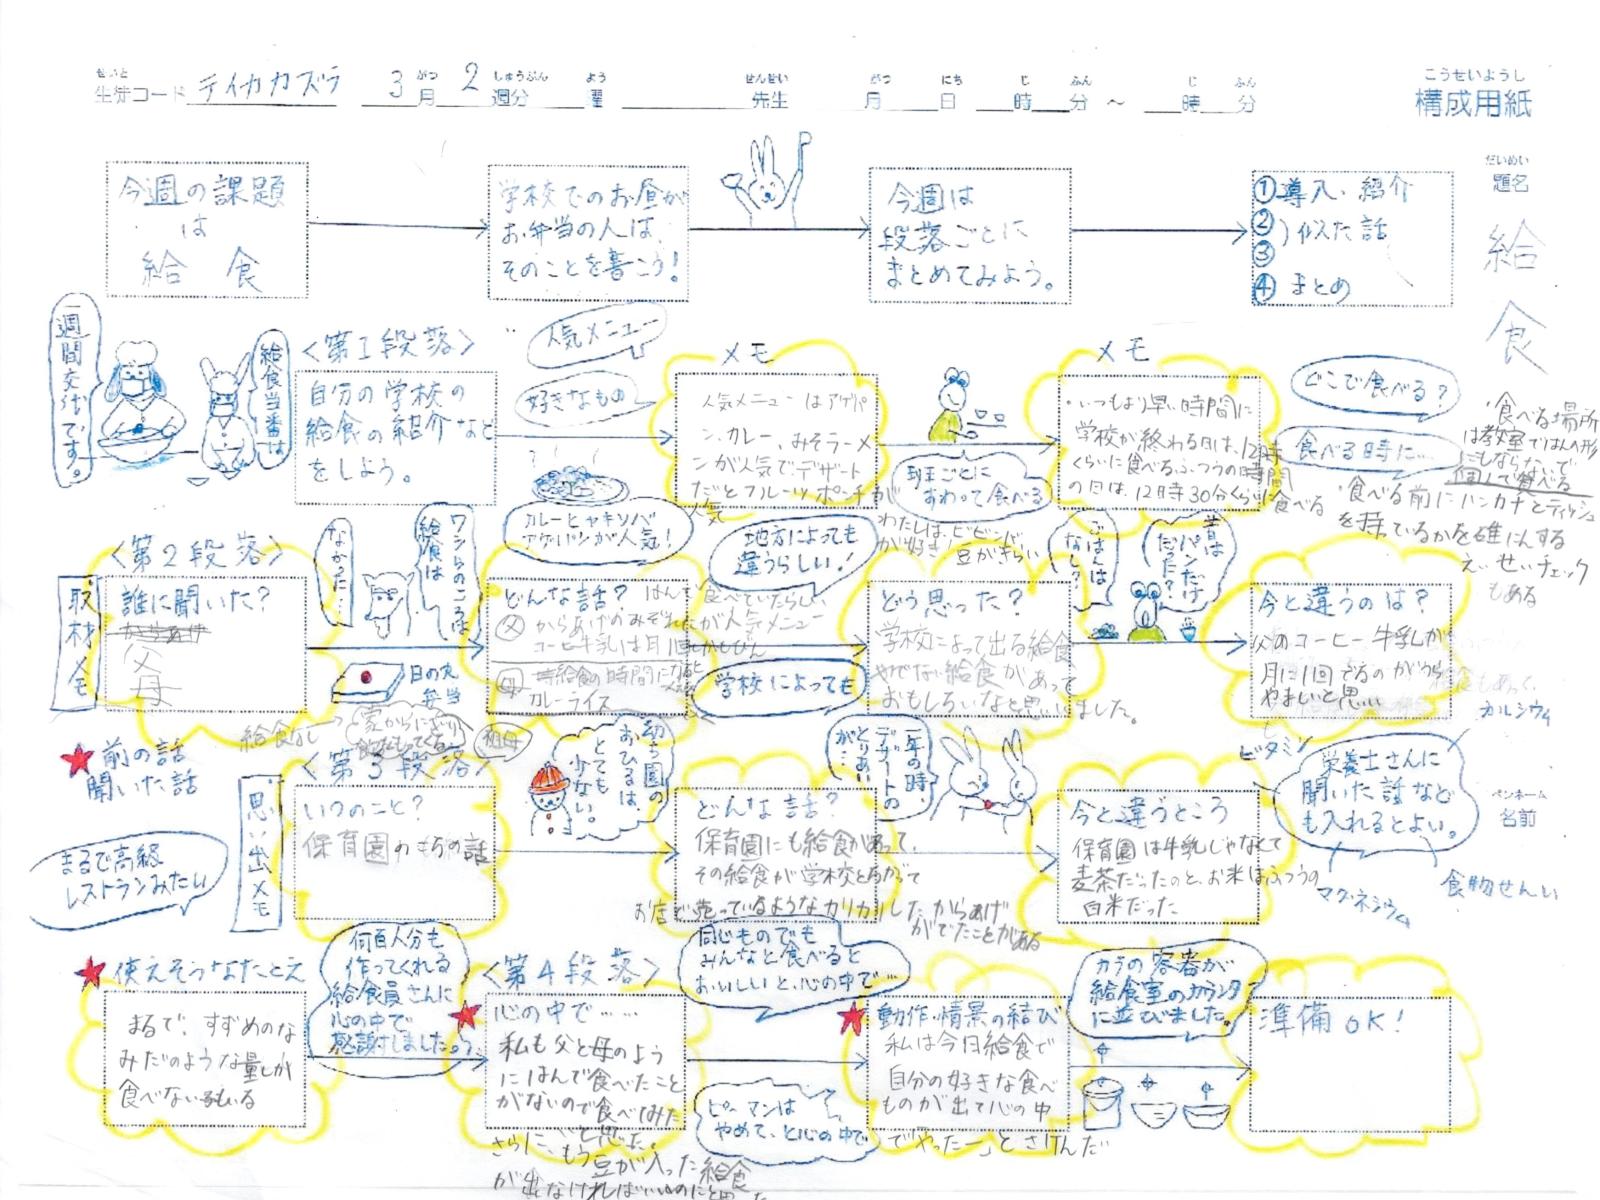 せいと
生徒コード テイカカズラ 3月 2週分 曜 先生 月 日 時 分 ～ 時 分
がつ しゅうぶん よう せんせい がつ にち じ ふん じ ふん
こうせいようし
構成用紙
だいめい
題名
給食
今週の課題
は
給 食
学校でのお昼が
お弁当の人は、
そのことを書こう!
今週は
段落ごとに
まとめてみよう。
①導入・紹介
②)似た話
③
④まとめ
一週間交代です。
給食当番は
<第1段落>
自分の学校の
給食の紹介など
をしよう。
人気メニュー
好きなもの
カレーとヤキソバ
アゲパンが人気!
メモ
人気メニューはアゲパ
ン、カレー、みそラーメ
ンが人気でデザート
だとフルーツポンチが
人気
班ごとに
すわって食べる
わたしは、ビビンバ
が好き!
豆がきらい
メモ
・いつもより早い時間に
学校が終わる日は、12時
くらいに食べるふつうの時間
の日は、12時30分くらいに
食べる
どこで食べる?
食べる時に…
・食べる場所
は教室ではんの形
にしならんで
個して食べる
・食べる前にハンカチとティッシュ
を持ているかを確にんする
えいせいチェック
もある
<第2段落>
取材メモ
誰に聞いた?
父
母
なかった…
ワシらのころは
給食は
日の丸
弁当
給食なし
祖母
どんな話? はんで食べていたらしい
父 からあげのみぞれたが人気メニュー
コーヒー牛乳は月1回
母 給食の時間になると
カレーライス
地方によっても
違うらしい!
学校によっても
どう思った?
学校によって出る給食
やでない給食があって
おもしろいなと思いました。
ごはんは
なし?
昔は
パンだけ
だった?
今と違うのは?
父のコーヒー牛乳が
月に1回でるのがうら
やましいと思い
カルシウム
ビタミン
栄養士さんに
聞いた話など
も入れるとよい。
マグネシウム
食物せんい
ペンネーム
名前
★前の話
聞いた話
まるで高級
レストランみたい
思い出メモ
<第3段落>
いつのこと?
保育園のときの話
幼ち園の
おひるは、
とても
少ない。
どんな話?
保育園にも給食があって、
その給食が学校とちがって
お店で売っているようなカリカリしたからあげ
がでたことがある
一年の時、
デザートの
とりあい
が…
今と違うところ
保育園は牛乳じゃなくて
麦茶だったのと、お米はふつうの
白米だった
★使えそうなたとえ
まるで、すずめのな
みだのような量しか
食べない子もいる
何百人分も
作ってくれる
給食員さんに
心の中で
感謝しました。
<第4段落>
★心の中で……
私も父と母のよう
にはんで食べたこと
がないので食べてみた
いと思った。
さらに、もう豆が入った給食
が出なければいいのにと思った
同じものでも
みんなと食べると
おいしいと、心の中で…
ピーマンは
やめて、と心の中で
★動作・情景の結び
私は今日給食で
自分の好きな食べ
ものが出て心の中
で「やったー」とさけんだ
カラの容器が
給食室のカウンタ
に並びました。
準備OK!